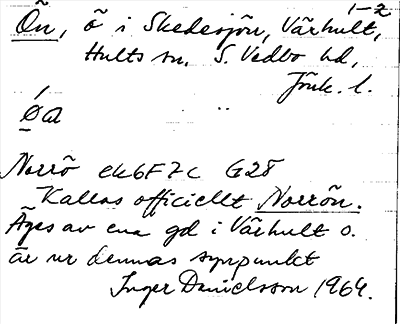 1-2
Ön, ö i Skedesjön, Vårhult,
Hults sn. S. Vedbo hd,
Jönk. l.
Norrö ek6F7c G28
Kallas officiellt Norrön.
Äges av ena gd i Vårhult o.
är ur dennas synpunkt
Inger Danielsson 1964.